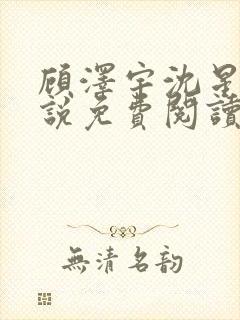 顾澤宇沈星
說免費閱讀
無清名韵